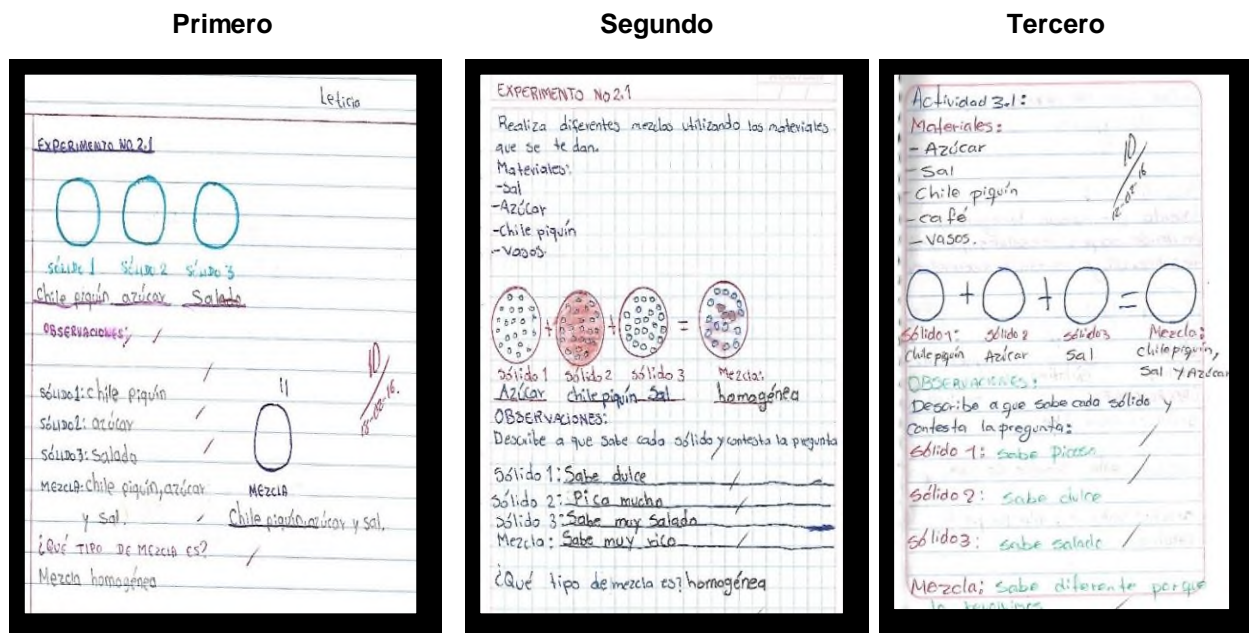 Primero
Segundo
Tercero
Leticia
EXPERIMENTO NO 2.1
SÓLIDO 1 SÓLIDO 2 SÓLIDO 3
Chile piquín azúcar Salado
OBSERVACIONES:
SÓLIDO1: Chile piquín
SÓLIDO2: azúcar
SÓLIDO3: Salado
MEZCLA: Chile piquín, azúcar
y sal.
=
10
MEZCLA
Chile piquín, azúcar y sal.
¿QUÉ TIPO DE MEZCLA ES?
Mezcla homogénea
EXPERIMENTO No 2.1
Realiza diferentes mezclas utilizando los materiales
que se te dan.
Materiales:
-Sal
-Azúcar
-Chile piquín
-Vasos.
+ + =
Sólido 1 Sólido 2 Sólido 3 Mezcla:
Azúcar chile piquín Sal homogénea
OBSERVACIONES:
Describe a que sabe cada sólido y contesta la pregunta
Sólido 1: Sabe dulce
Sólido 2: Pica mucho
Sólido 3: Sabe muy Salado
Mezcla: Sabe muy rico
¿Qué tipo de mezcla es? homogénea
Actividad 3.1:
Materiales:
- Azúcar
- Sal
- Chile piquín
- café
- vasos.
10
+ + =
Sólido 1: Sólido 2 sólido 3 Mezcla:
Chile piquín Azúcar Sal chile piquín,
Sal y Azúcar
OBSERVACIONES:
Describe a que sabe cada sólido y
contesta la pregunta:
Sólido 1: sabe
Sólido 2: sabe dulce
Sólido 3: sabe salado
Mezcla: sabe diferente porque